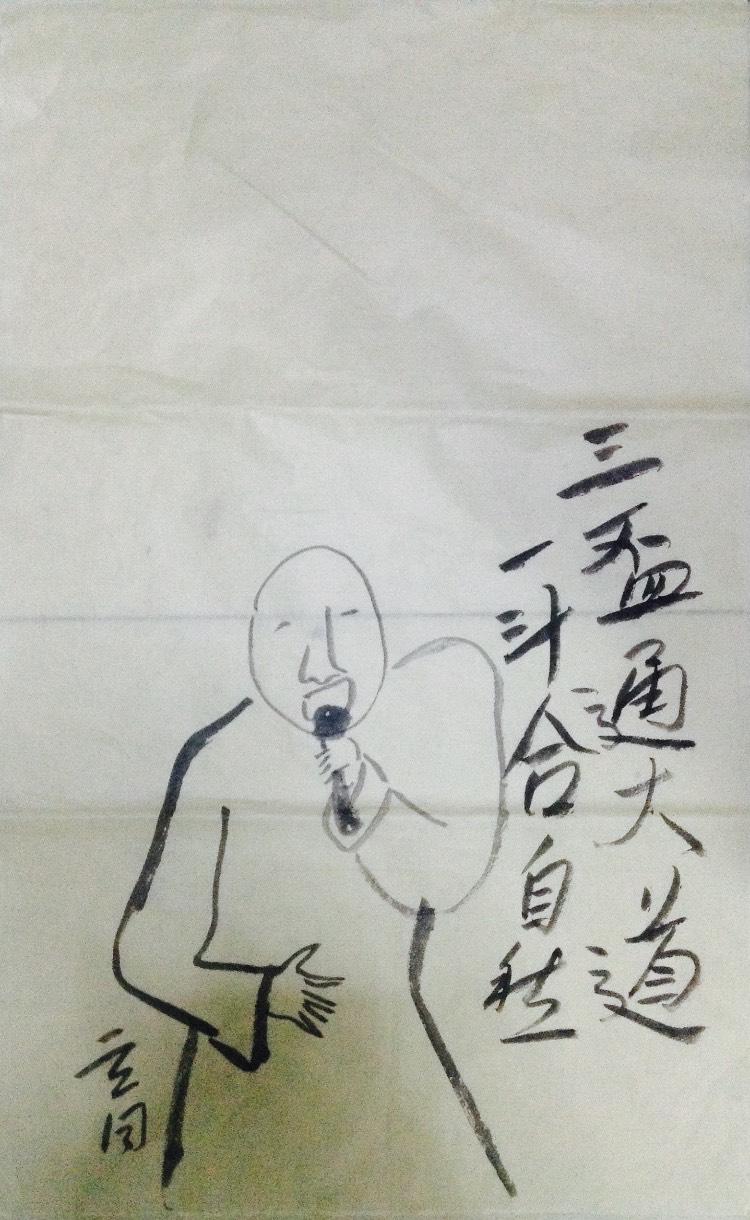 三盃通大道
一斗合自然
玄同